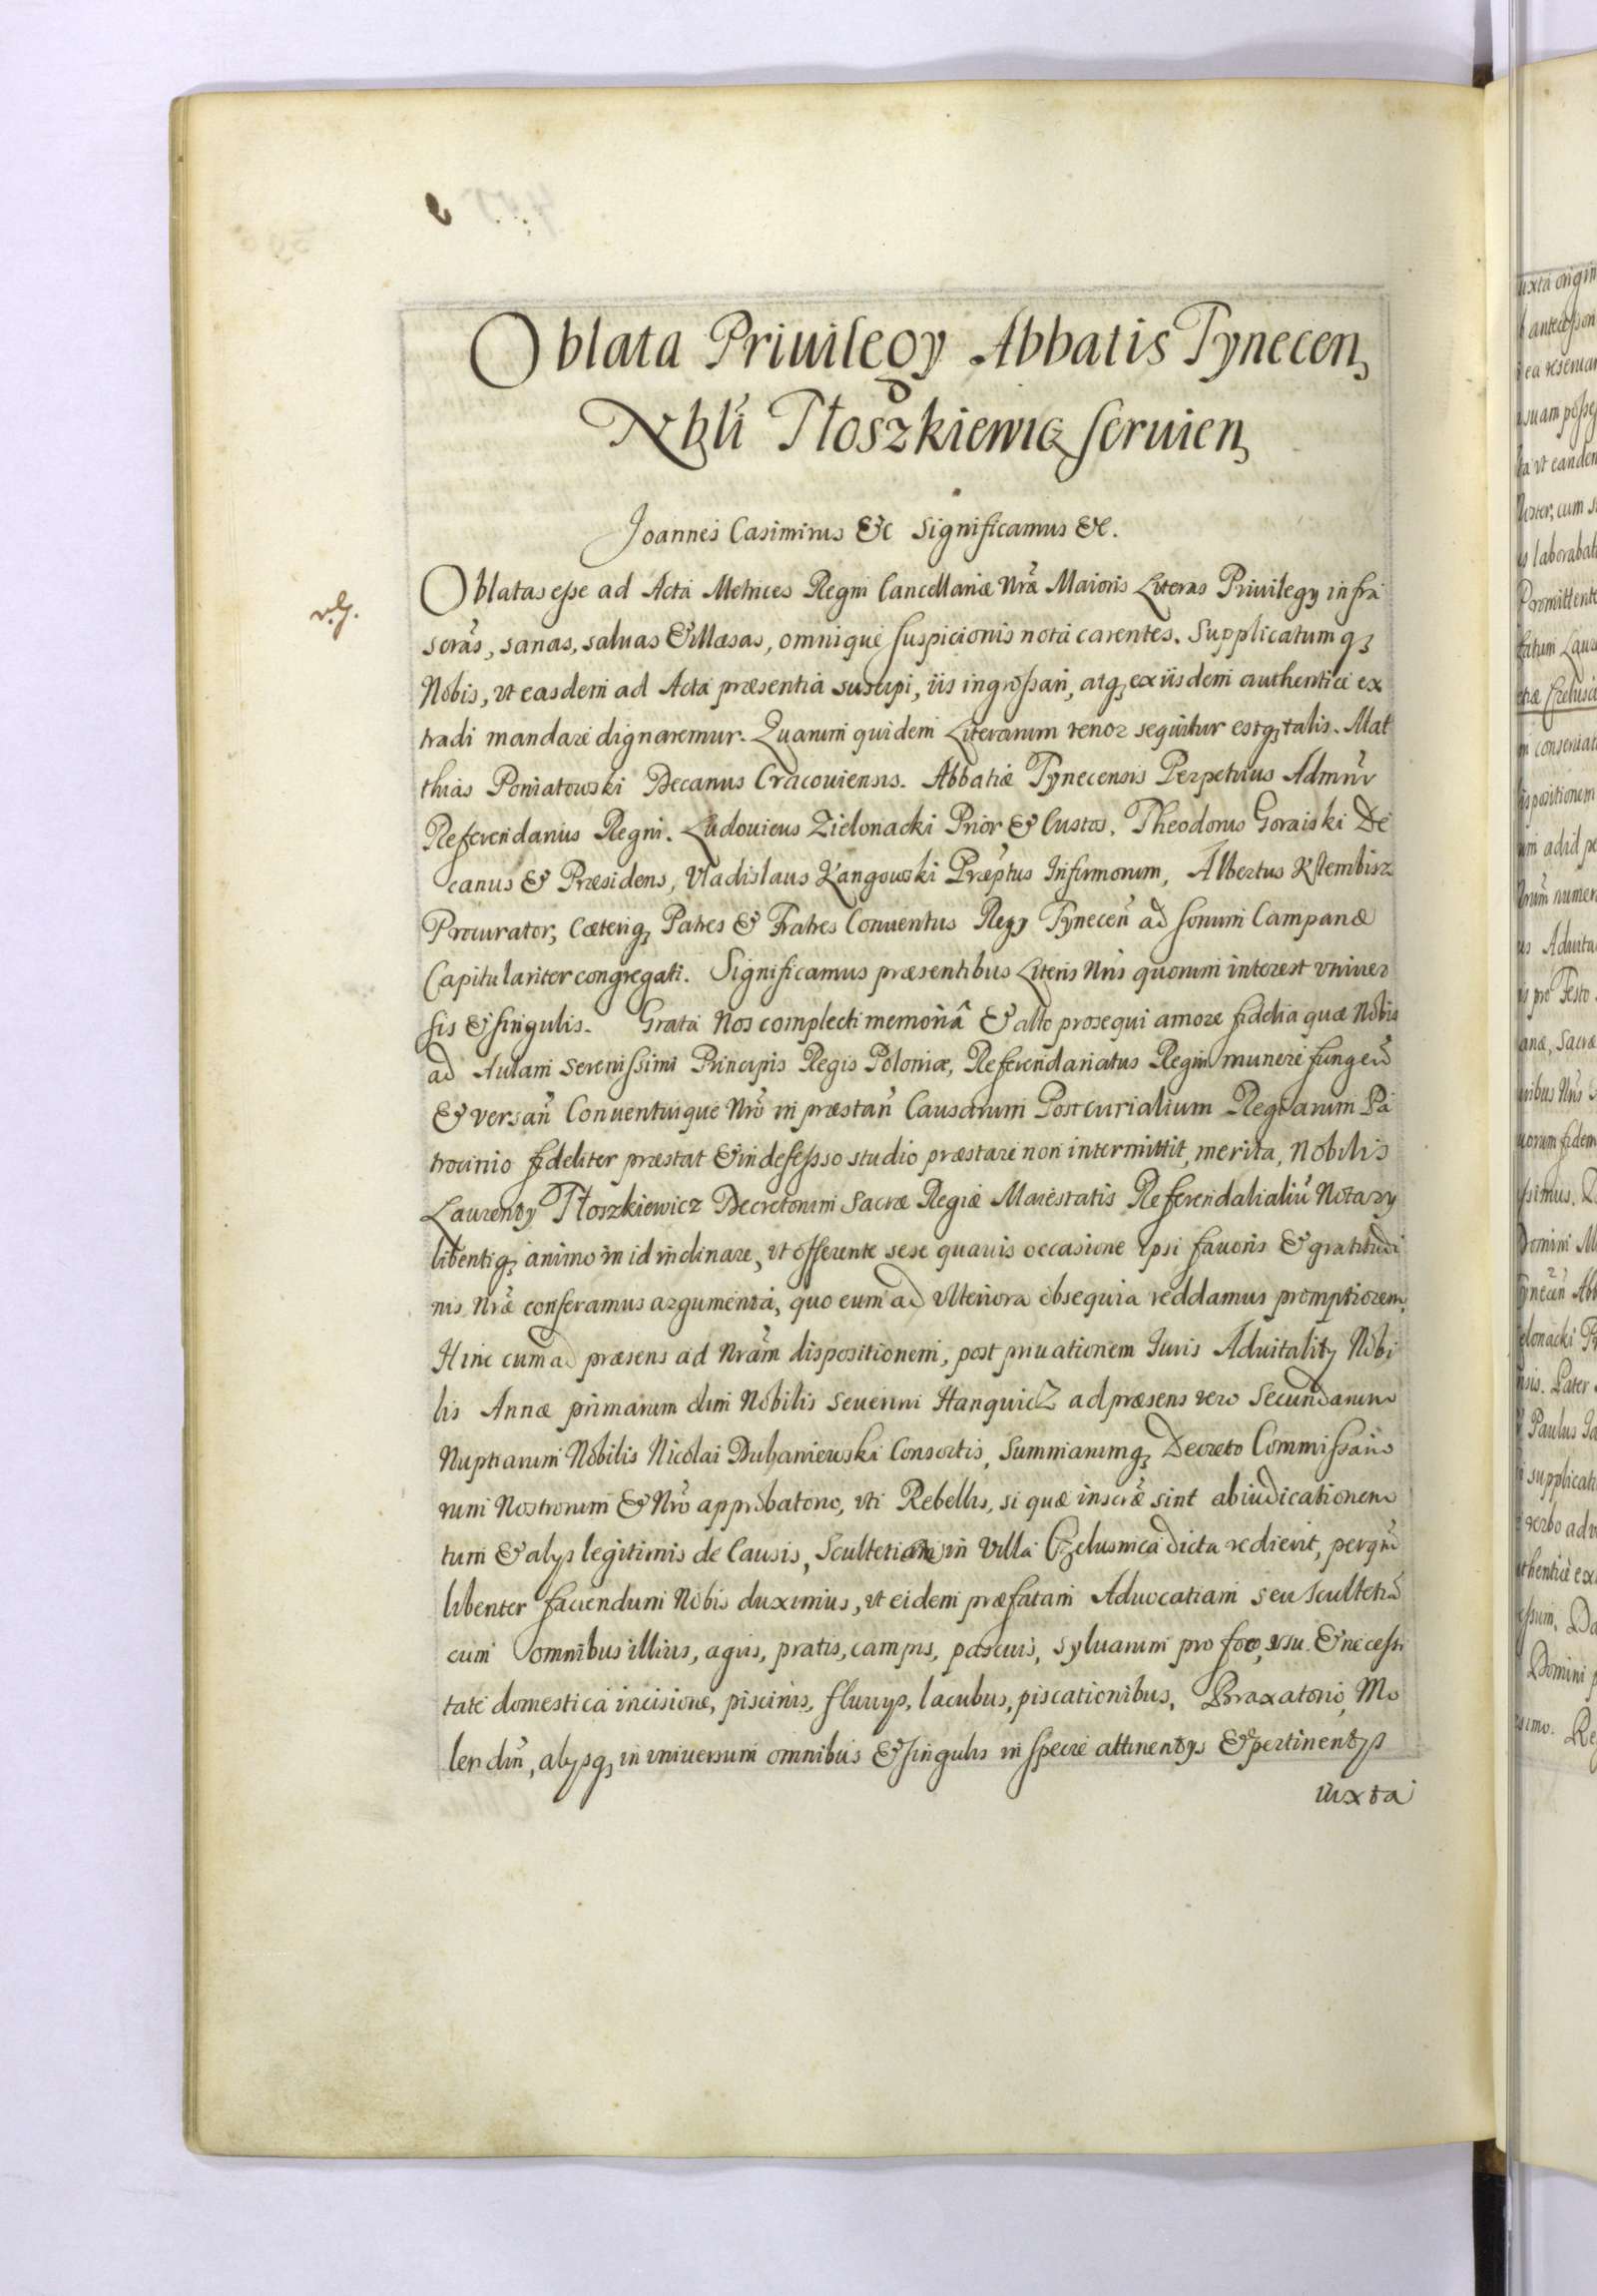 Oblata Priuilegy Abbatis Tynecen,
Nbli Płoszkiewicz seruien,
Joannes Casimirus &c Significamus &c.
Oblatas esse ad Acta Metrices Regni Cancellariæ Nrã Maioris Literas Priuilegy infra
scrãs, sanas, saluas & illæsas, omnique suspicionis nota carentes. Supplicatumq;
Nobis, vt easdem ad Acta præsentia suscipi, iis ingrossari, atq; ex iisdem authentice ex
tradi mandare dignaremur. Quarum quidem Literarum tenor sequitur estq; talis. Mat
thias Poniatowski Decanus Cracouiensis. Abbatiæ Tynecensis Perpetuus Admnr̃
Referendarius Regni. Ludouicus Zielonacki Prior & Custos, Theodorus Goraiski De
canus & Præsidens, Vladislaus Łangowski Præptus Infirmorum, Albertus
Procurator, Cæteriq; Patres & Fratres Conuentus Regy Tynecen̄ ad sonum Campanæ
Capitulariter congregati. Significamus præsentibus Literis Nris quorum interest vniuer
sis & singulis. Grata Nos complecti memoriâ & alto prosequi amore fidelia quæ Nobis
ad Aulam Serenissimi Principis Regis Poloniæ, Referendariatus Regni munere fungen̄
& versan̄ Conuentuique Nrõ in præstan̄ Causarum Postcurialium Regiarum Pa
trocinio fideliter præstat & indefessso studio præstare non intermittit, merita, Nobilis
Laurenty Płoszkiewicz Decretorum Sacræ Regiæ Maiestatis Referendalialiũ Notary
libentiq; animo in id inclinare, vt offerente sese quauis occasione ipsi fauoris & gratitudi
nis Nrã conferamus argumenta, quo eum ad vlteriora obsequia reddamus promptiorem.
Hinc cum ad præsens ad Nrãm dispositionem, post priuationem Iuris Aduitality Nobi
lis Annæ primarum dum Nobilis Seuerini Hanquicz ad præsens vero Secundarum
Nuptiarum Nobilis Nicolai Dubaniewski Consortis, Summarumq; Decreto Commissario
rum Nostrorum & Nrõ approbatorio, vti Rebellis, si quæ inscrã sint abiudicationem
tum & alys legitimis de Causis, Scultetiam in Villa Czelusnica dicta redierit, perqm̃
libenter faciendum Nobis duximus, vt eidem præfatam Aduocatiam seu Scultetiã
cum omnibus illius, agris, pratis, campis, pascuis, syluarum pro foco, vsu & necessi
tate domestica incisione, piscinis, fluuys, lacubus, piscationibus, Braxatorio, Mo
lendin̄, alysq; in vniuersum omnibus & singulis in specie attinentys & pertinentys
iuxta